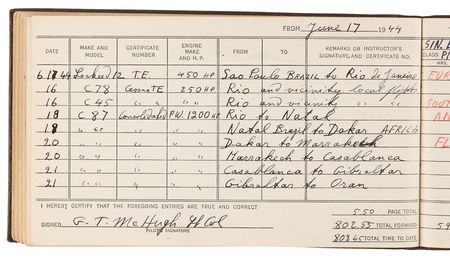 FROM June 17 1944
DATE MAKE AND MODEL CERTIFICATE NUMBER ENGINE MAKE AND H.P. FROM TO REMARKS OR INSTRUCTOR'S SIGNATURE, AND CERTIFICATE NO. CLASS
HRS.
6.17.44 Lockeed 12 T.E. 450 HP Sao Paulo BRAZIL to Rio de Janeiro
16 C78 Cessna TE 250 HP Rio and vicinity local flights
16 C45 " " " " Rio and vicinity " "
18 C87 Consolidated P.W. 1200 HP. Rio to Natal
18 " " " " " " Natal Brazil to Dakar AFRICA
20 " " " " " " Dakar to Marrakech
20 " " " " " " Marrakech to Casablanca
21 " " " " " " Casablanca to Gibraltar
21 " " " " " " Gibraltar to Oran
I HEREBY CERTIFY THAT THE FOREGOING ENTRIES ARE TRUE AND CORRECT
SIGNED G. T. McHugh Lt Col
PILOT'S SIGNATURE
5:50 PAGE TOTAL
802:55 TOTAL FORWARD
808:45 TOTAL TIME TO DATE